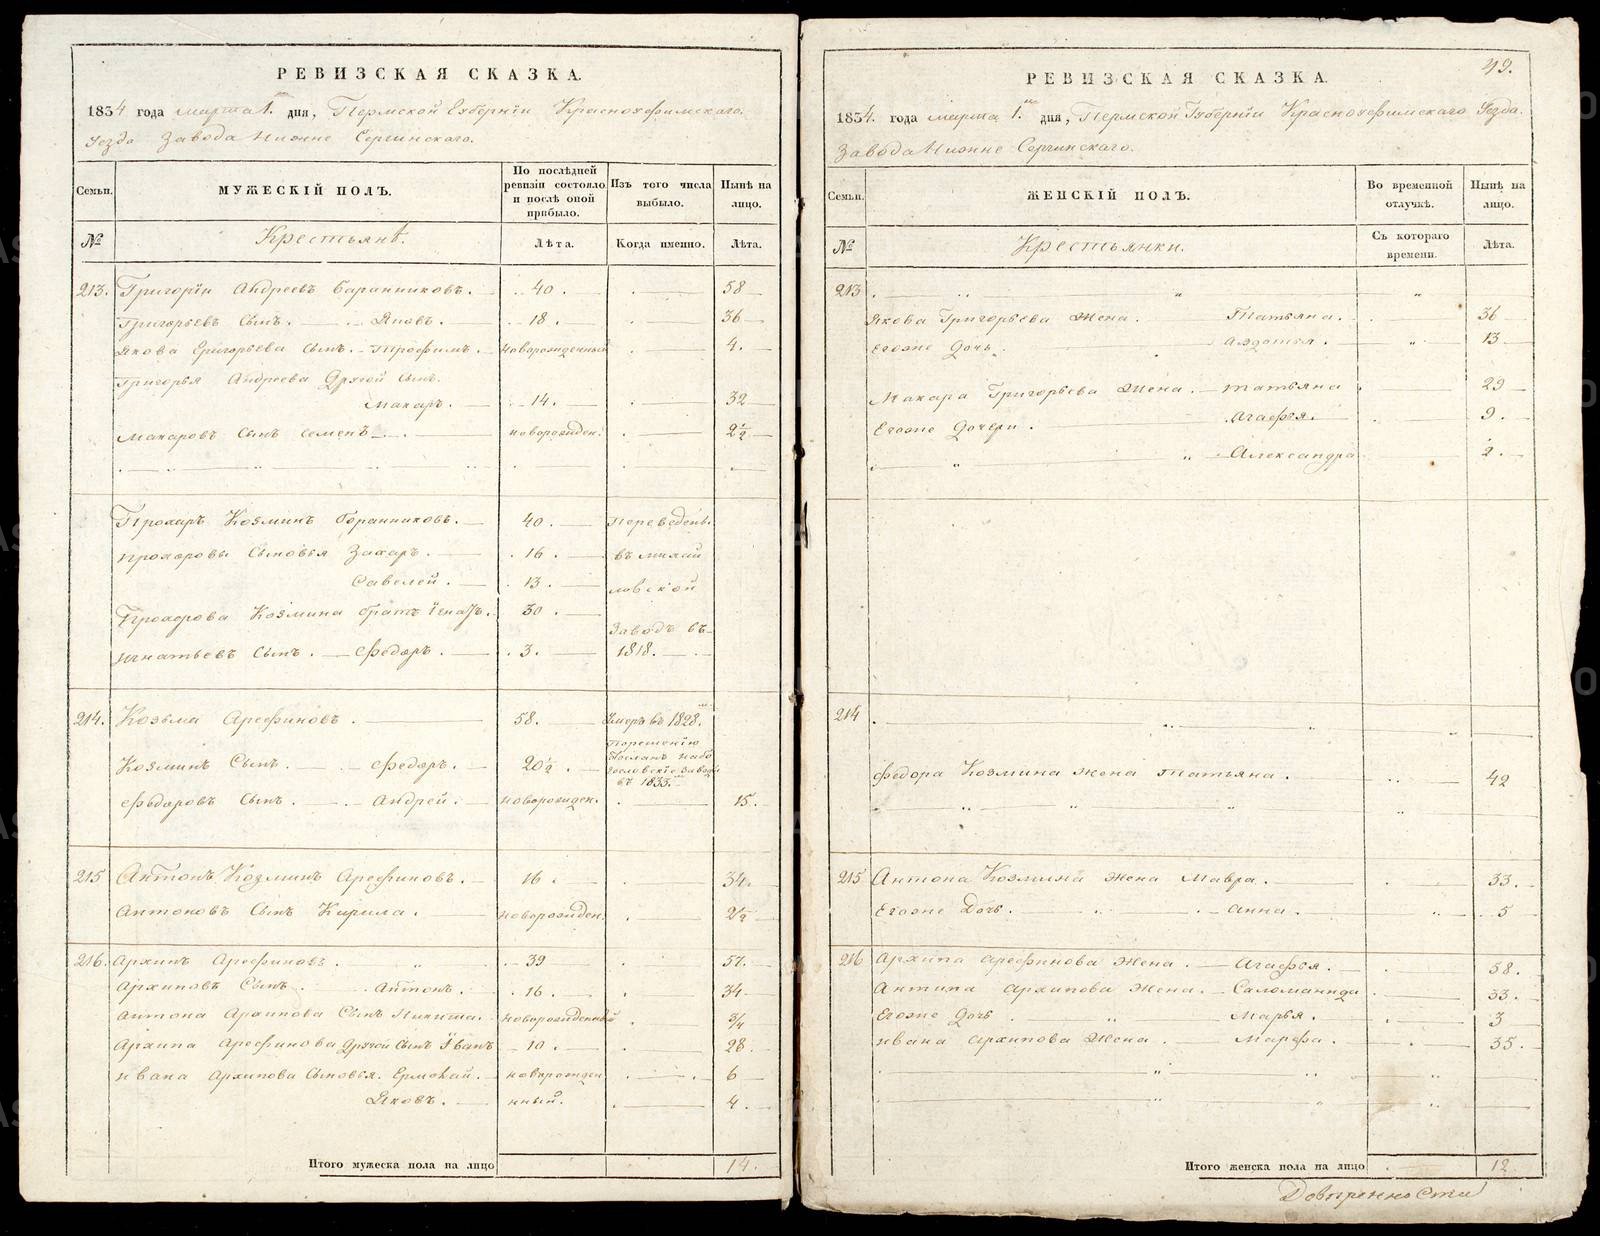 РЕВИЗСКАЯ СКАЗКА.
1834 года марта 1. дня, Пермской Губернiи Красноуфимскаго
Уезда Завода Нижне Сергинскаго.
Семьи. МУЖЕСКIЙ ПОЛЪ. По последней ревизiи состояло и послѣ оной прибыло. Изъ того числа выбыло. Нынѣ на лицо.
№ Крестьянъ. Лѣта. Когда именно. Лѣта.
213. Григорiи Андреевъ Баранниковъ. 40. 58
Григорьевъ Сынъ. Яковъ. 18. 36
Якова Григорьева сынъ. Трофимъ. новорожденный 4.
Григорья Андреева Другой сынъ.
Макаръ. 14. 32
Макаровъ сынъ семенъ новорожден. 2½
Прохоръ Козминъ Баранниковъ. 40. Переведены
Прохоровы Сыновья Захаръ. 16. въ михай
Савелей. 13. ловской
Прохорова Козмина братъ 30. Заводъ въ
Игнатьевъ Сынъ. Федоръ. 3. 1818.
214. Козьма Арефиновъ. 58. Умеръ въ 1828.
Козминъ Сынъ. Федоръ. 20½. По решенiю Посланъ на Богословскiе заводы въ 1833.
Федоровъ Сынъ. Андрей. новорожден. 15.
215 Антонъ Козминъ Арефиновъ. 16. 34.
Антоновъ Сынъ Кирила. новорожден. 2½
216. Архипъ Арефиновъ. 39 57.
Архиповъ Сынъ. Антонъ. 16. 34
Антона Архипова Сынъ Никита. новорожденный ¾
Архипа Арефинова Другой Сынъ Iванъ 10. 28.
Ивана Архипова Сыновья. Ермолай. новорожден 6
Яковъ. нный. 4.
Итого мужеска пола на лицо 14.
49.
РЕВИЗСКАЯ СКАЗКА.
1834. года марта 1. дня, Пермской Губернiи Красноуфимскаго Уезда.
Завода Нижне Сергинскаго.
Семьи. ЖЕНСКIЙ ПОЛЪ. Во временной отлучкѣ. Нынѣ на лицо.
№ Крестьянки. Съ котораго времени. Лѣта.
213
Якова Григорьева Жена. Татьяна. 36
Егоже Дочь. Авдотья. 13
Макара Григорьева Жена. Татьяна 29
Егоже Дочери. Агафья. 9.
Александра 2.
214
Федора Козмина жена Татьяна. 42
215 Антона Козмина жена Мавра. 33.
Егоже Дочь. Анна. 5
216 Архипа Арефинова Жена. Агафья. 58.
Антипа Архипова Жена. Саломанида 33.
Егоже Дочь Марья. 3
Ивана Архипова Жена. Марфа. 35.
Итого женска пола на лицо 12